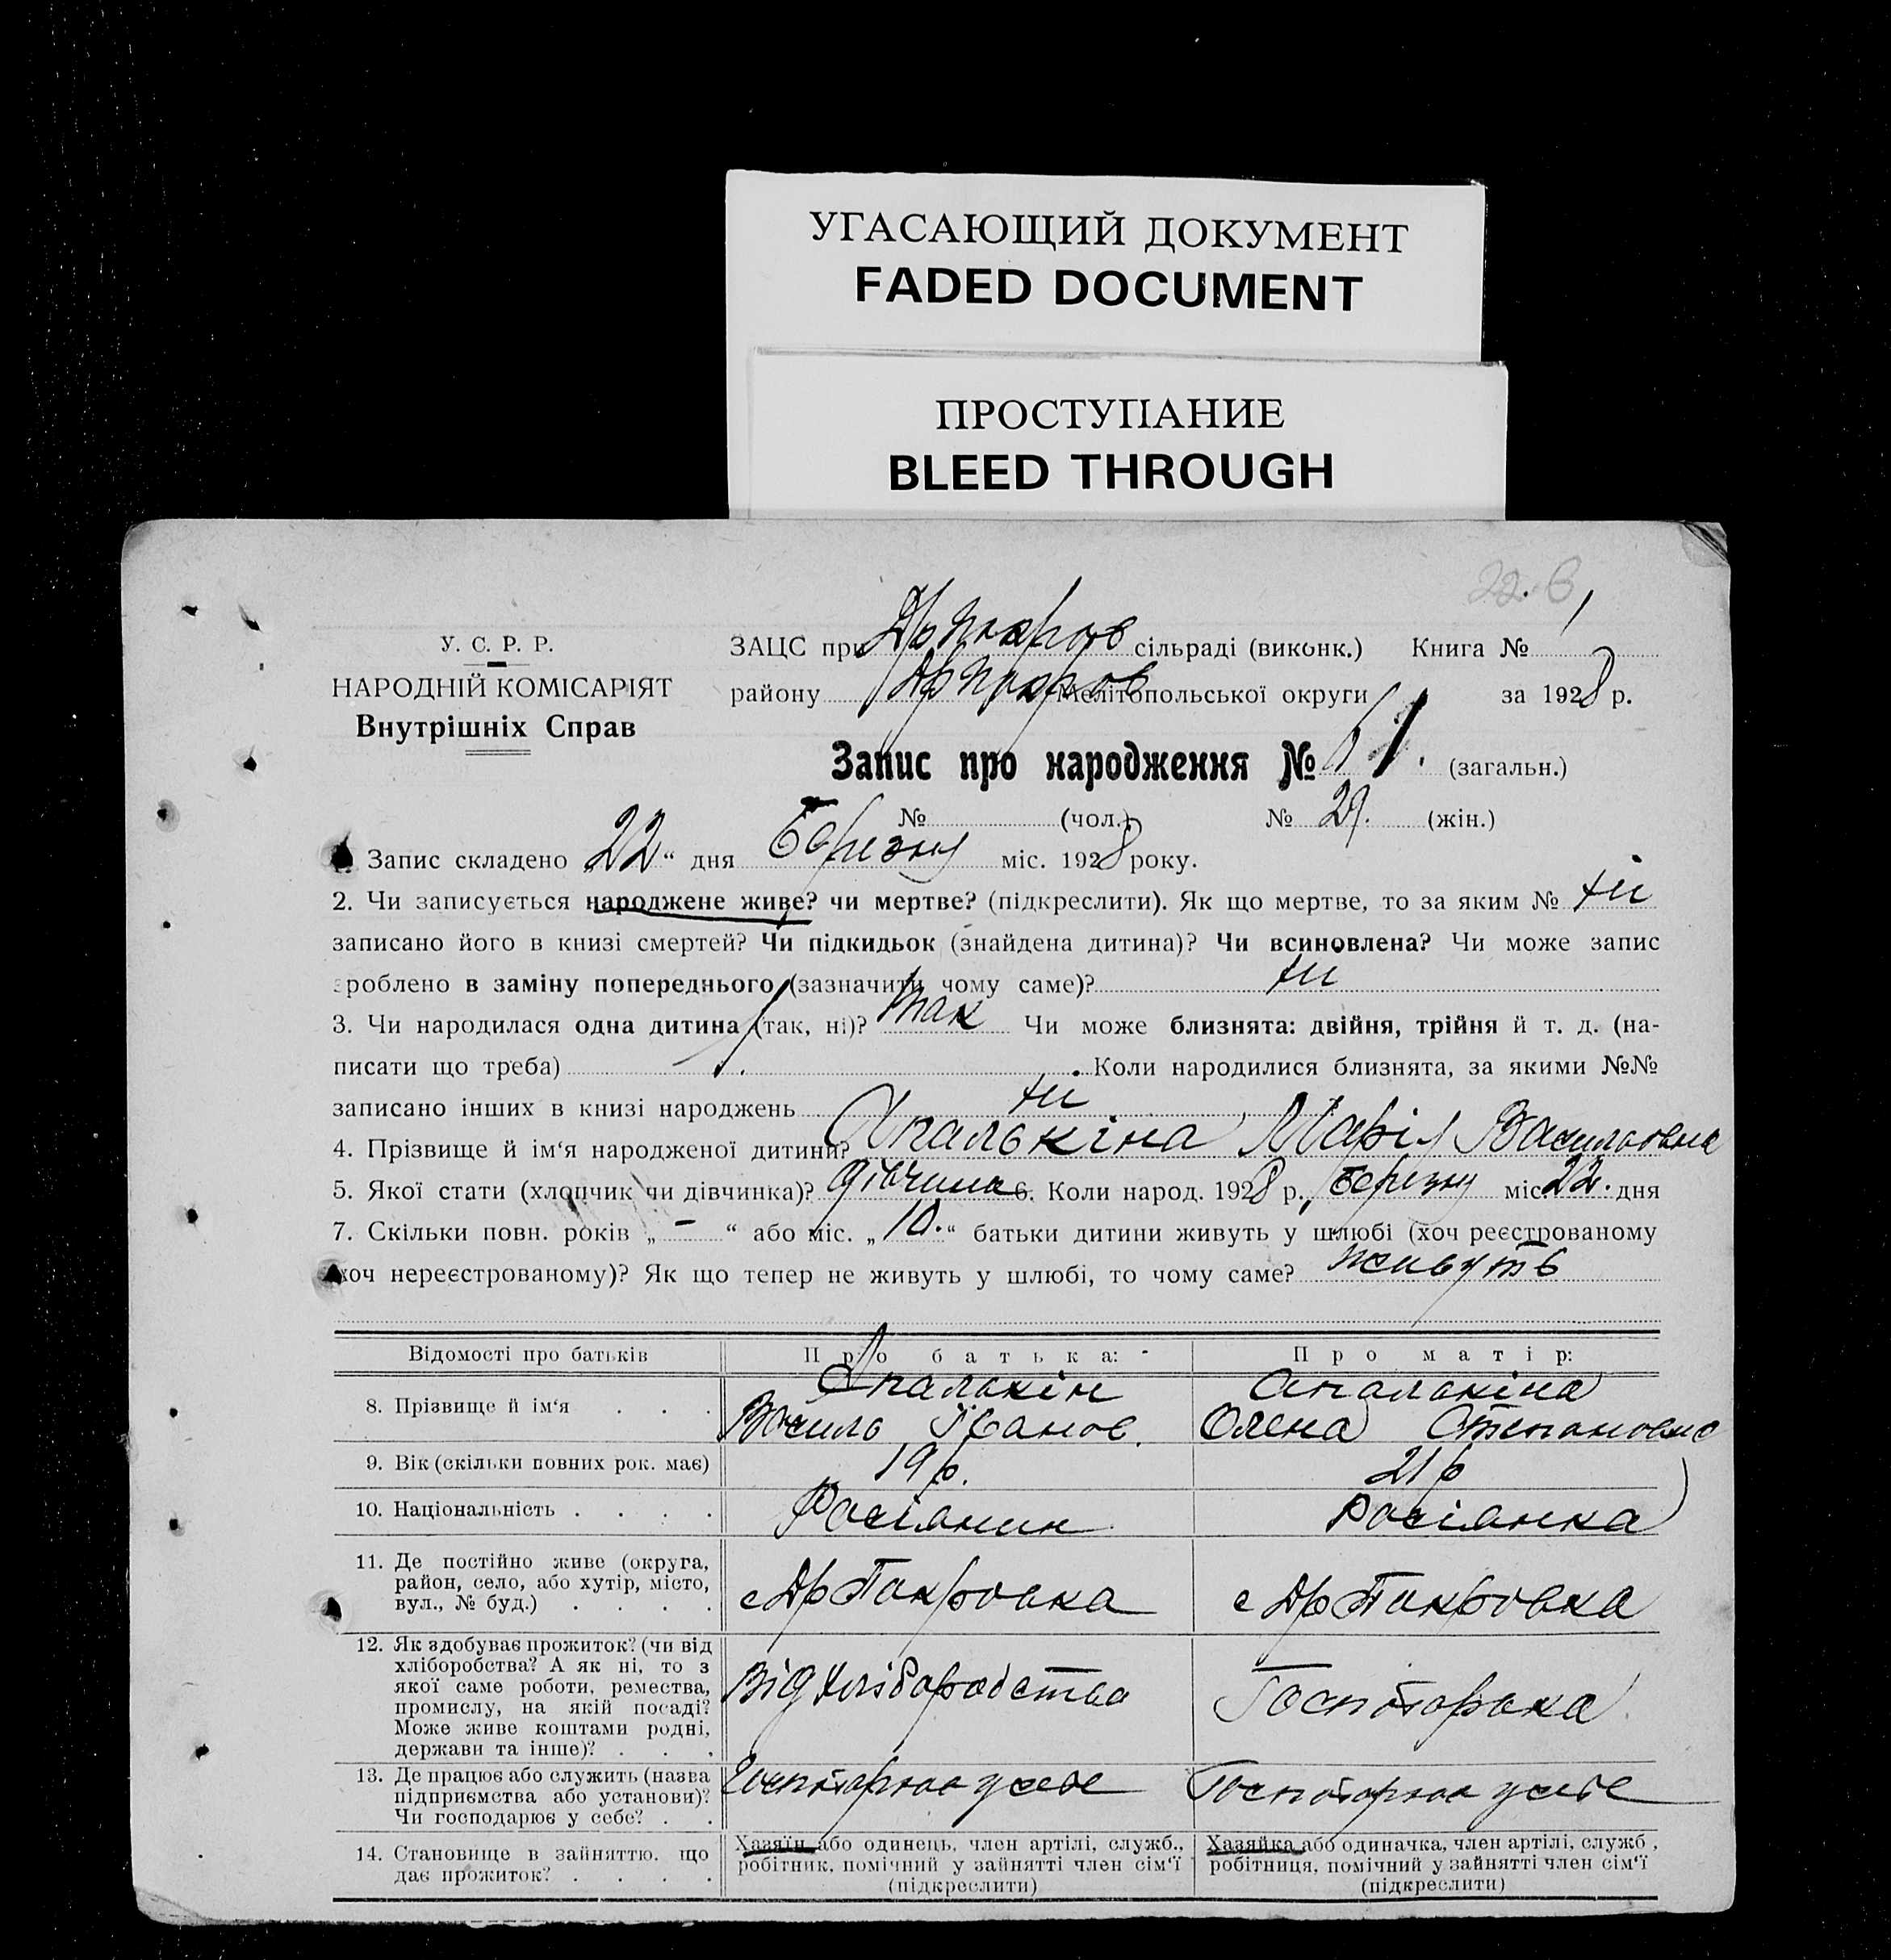 УГАСАЮЩИЙ ДОКУМЕНТ
FADED DOCUMENT
ПРОСТУПАНИЕ
BLEED THROUGH
22.
У. С. Р. Р.
НАРОДНІЙ КОМІСАРІЯТ
Внутрішніх Справ
ЗАЦС при Др Покров сільраді (виконк.) Книга № 1
району Др Покров Мелітопольської округи за 1928 р.
Запис про народження № (загальн.)
№ (чол.) № 29. (жін.)
Запис складено „22“ дня Березня міс. 1928 року.
2. Чи записується народжене живе? чи мертве? (підкреслити). Як що мертве, то за яким № ні
записано його в книзі смертей? Чи підкидьок (знайдена дитина)? Чи всиновлена? Чи може запис
зроблено в заміну попереднього (зазначити чому саме)? ні
3. Чи народилася одна дитина (так, ні)? так Чи може близнята: двійня, трійня й т. д. (на-
писати що треба) Коли народилися близнята, за якими №№
записано інших в книзі народжень ні
4. Прізвище й ім‘я народженої дитини? Апалькіна Марія Васильовна
5. Якої стати (хлопчик чи дівчинка)? дівчина 6. Коли народ. 1928 р., березня міс 22. дня
7. Скільки повн. років „-“ або міс. „10.“ батьки дитини живуть у шлюбі (хоч реєстрованому
хоч нереєстрованому)? Як що тепер не живуть у шлюбі, то чому саме? живуть
Відомості про батьків
Про батька:
Про матір:
8. Прізвище й ім‘я . . .
Апалькін
Василь Іванов.
Апалькіна
Олена Степановна
9. Вік (скільки повних рок. має)
19 р.
21 р
10. Національність . . . .
Росіянин
Росіянка
11. Де постійно живе (округа,
район, село, або хутір, місто,
вул., № буд.) . . . .
с Др Покровка
с Др Покровка
12. Як здобуває прожиток? (чи від
хліборобства? А як ні, то з
якої саме роботи, ремества,
промислу, на якій посаді?
Може живе коштами родні,
держави та інше)? . . .
Від хліборобства
13. Де працює або служить (назва
підприємства або установи)?
Чи господарює у себе? . .
у себе
у себе
14. Становище в зайняттю, що
дає прожиток? . . . .
Хазяїн або одинець, член артілі, служб.,
робітник, помічний у зайнятті член сім‘ї
(підкреслити)
Хазяйка або одиначка, член артілі, служб.,
робітниця, помічний у зайнятті член сім‘ї
(підкреслити)